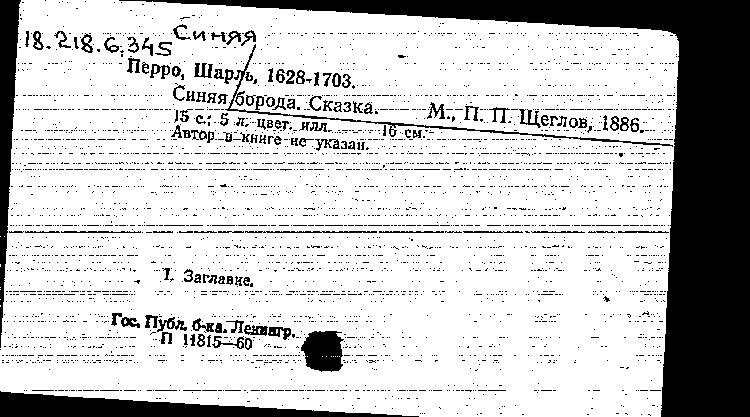 Синяя
18.218.6.345
Перро, Шарль, 1628-1703.
Синяя борода. Сказка. М., П. П. Щеглов, 1886.
15 с.; 5 л. цвет. илл. 16 см.
Автор в книге не указан.
I. Заглавие.
Гос. Публ. б-ка. Ленингр.
П 11815—60